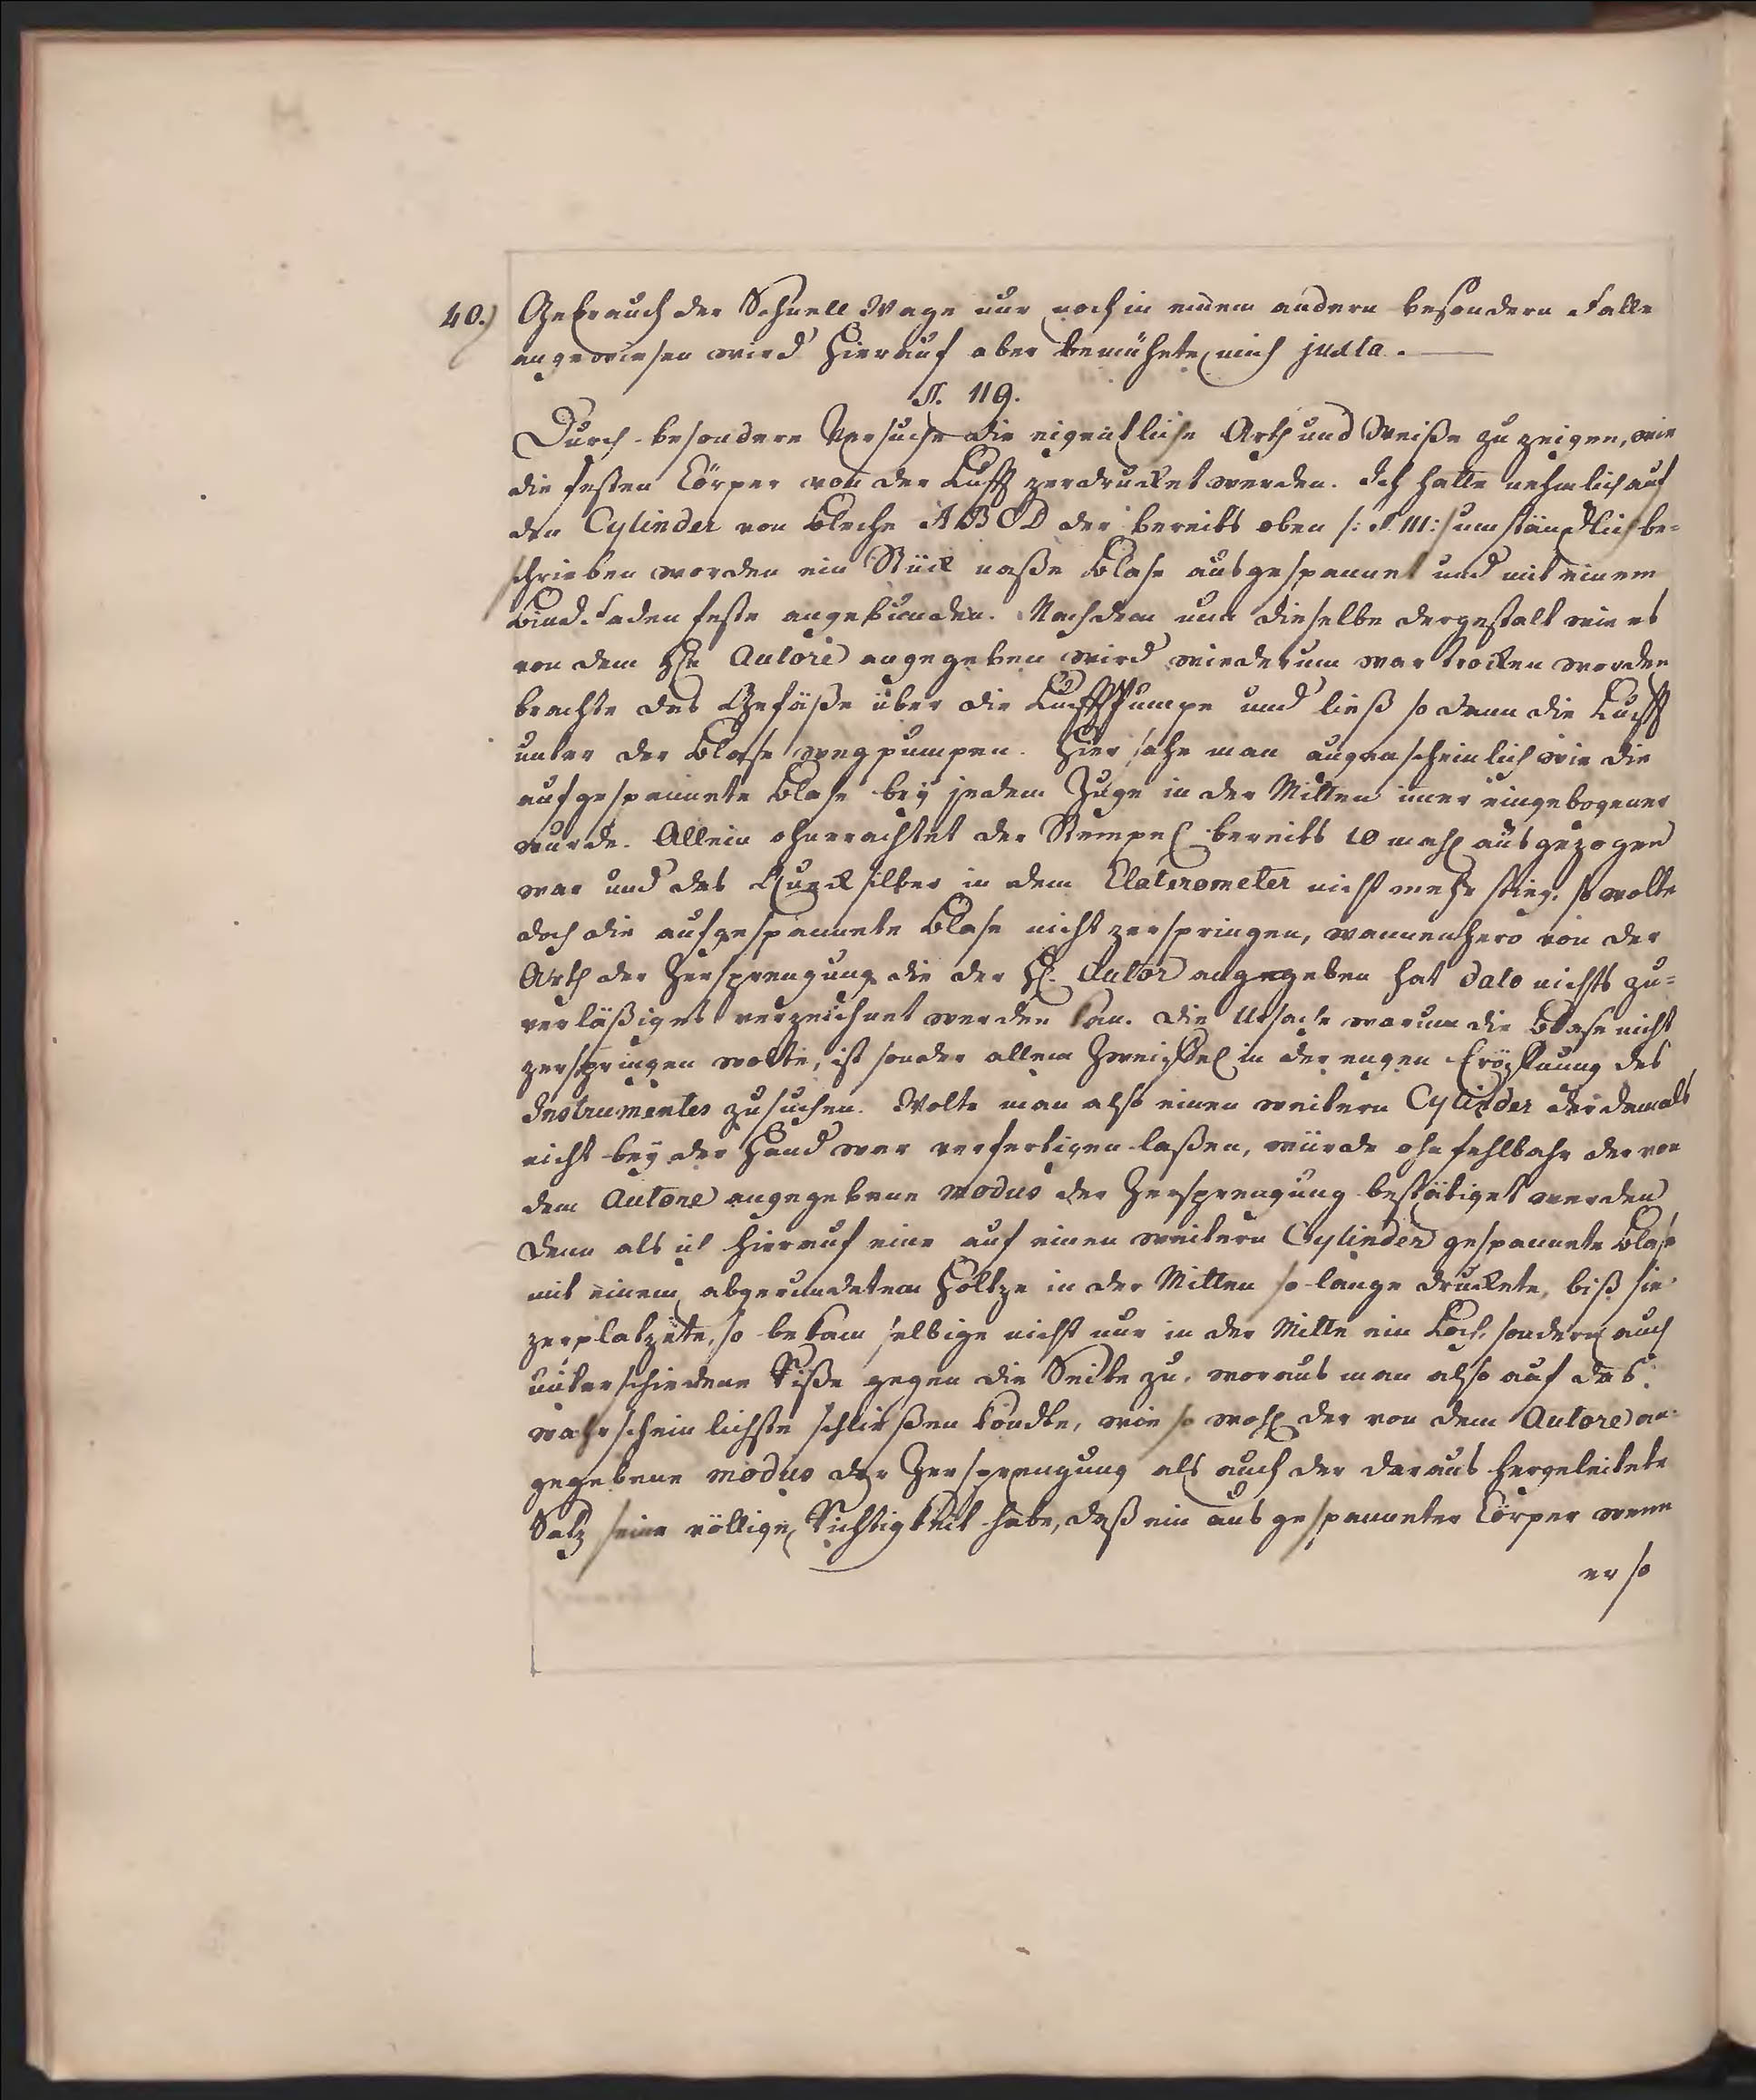 40.) Gebrauch der Schnell Wage nur noch in einem andern besondern Falle
angewiesen wird hierauf aber bemühete mich juxta.
§. 119.
Durch besondere Versuche die eigentliche Arth und Weiße zu zeigen, wie
die festen Cörper von der Lufft zerdrucket werden. Ich hatte nehmlich auf
den Cylinder von Bleche ABCD der bereits oben /: §. 111 :/ umständlich be=
schrieben worden ein Stück naße Blase ausgespannet und mit einem
Bind-Faden feste angebunden. Nachdem nun dieselbe dergestalt wie es
von dem Hn Autore angegeben wird wiederum war trocken worden
brachte das Gefäße über die Lufftpumpe und ließ so dann die Lufft
unter der Blase wegpumpen. Hier sahe man augenscheinlich wie die
aufgespannete Blase bey jedem Zuge in der Mitten imer eingebogener
wurde. Allein ohnerachtet der Stempel bereits 10 mahl ausgezogen
war und das Queck silber in dem Elaterometer nicht mehr stieg. so wolte
doch die aufgespannete Blase nicht zerspringen, wannenhero von der
Arth der Zersprengung die der H. Autor angegeben hat dato nichts zu=
verläßiges verzeichnet werden kan. Die Ursache warum die Blase nicht
zerspringen wolte, ist sonder allem Zweiffel in der engen Eröffnung des
Instrumentes zusuchen. Wolte man also einen weitern Cylinder der damals
nicht bey der Hand war verfertigen laßen, würde ohnfehlbahr der von
dem Autore angegebene modus der Zersprengung bestätiget werden
denn als ich hierauf eine auf einen weitern Cylinder gespannete Blase
mit einem abgerundetem Holtze in der Mitten so lange druckete, biß sie
zerplatzete, so bekam selbige nicht nur in der Mitte ein Loch, sondern auch
unterschiedene Riße gegen die Seite zu, woraus man also auf das
wahrscheinlichste schließen kondte, wie so wohl der von dem Autore an-
gegebene modus der Zersprengung als auch der daraus hergeleitete
Satz seine völlige Richtigkeit habe, daß ein ausgespanneter Cörper wenn
er so